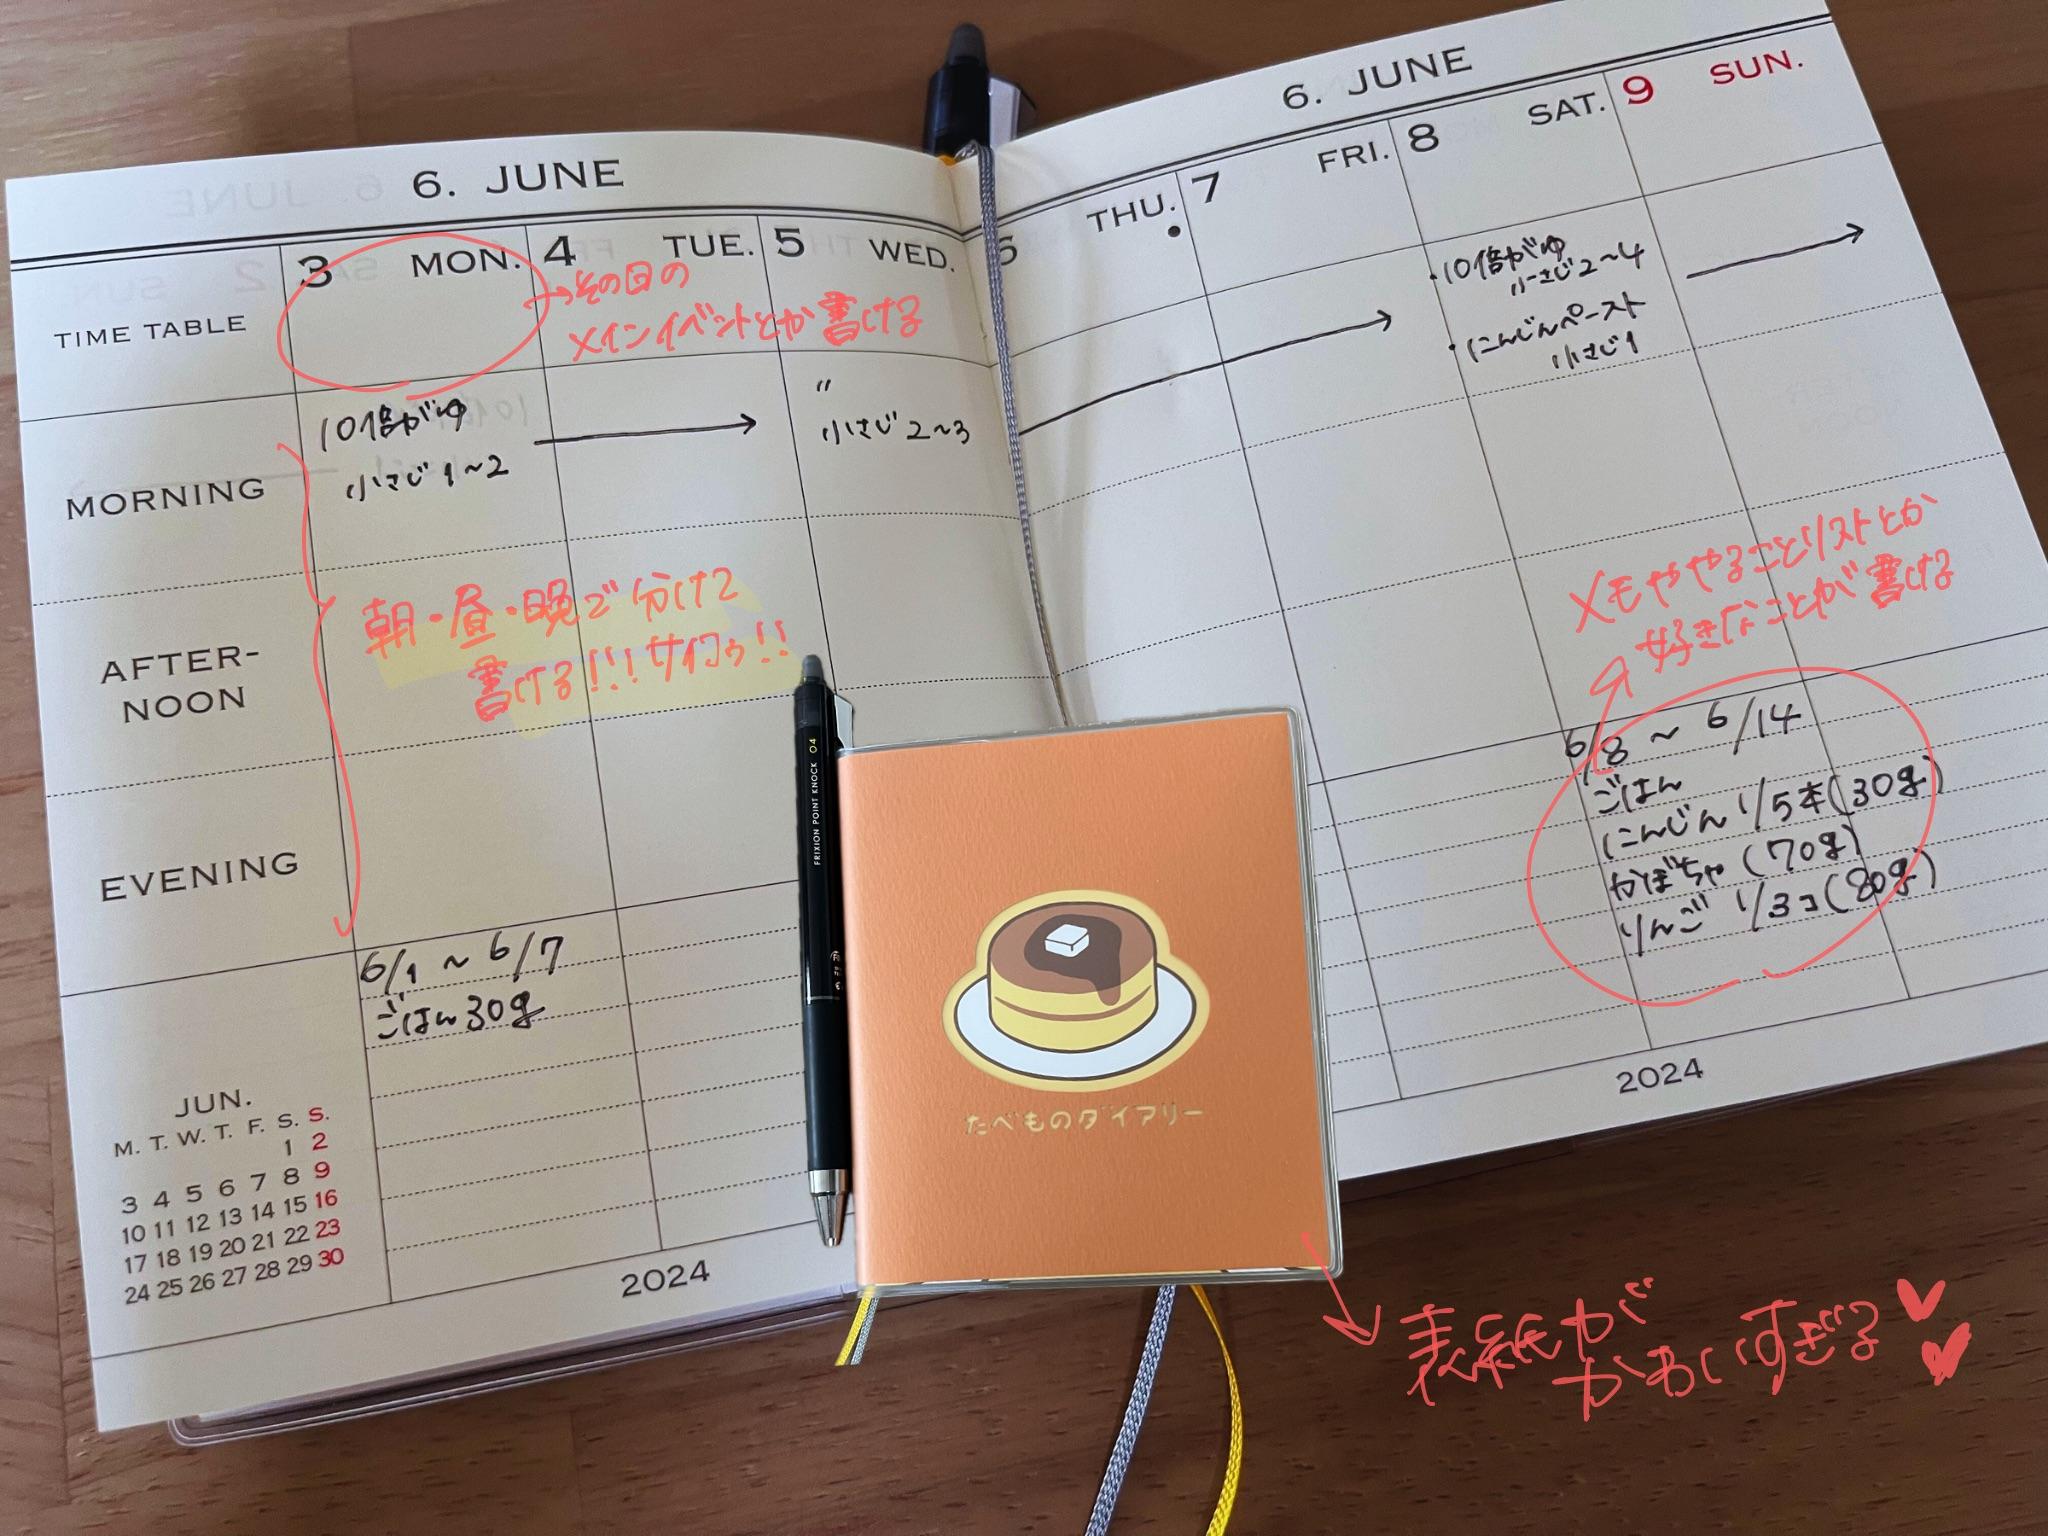 6. JUNE
3 MON. 4 TUE. 5 WED.
TIME TABLE
→その日の
メインイベントとか書ける
MORNING
10倍がゆ
小さじ1〜2
〃
小さじ2〜3
AFTER-
NOON
朝・昼・晩で分けて
書ける!!!サイコウ!!
EVENING
6/1 〜 6/7
ごはん30g
JUN.
M. T. W. T. F. S. S.
1 2
3 4 5 6 7 8 9
10 11 12 13 14 15 16
17 18 19 20 21 22 23
24 25 26 27 28 29 30
2024
6. JUNE
6 THU. 7 FRI. 8 SAT. 9 SUN.
・10倍がゆ
小さじ2〜4
・にんじんペースト
小さじ1
メモややることリストとか
好きなことが書ける
6/8 〜 6/14
ごはん
にんじん 1/5本(30g)
かぼちゃ(70g)
りんご 1/3コ(80g)
2024
FRIXION POINT KNOCK 04
たべものダイアリー
表紙が
かわいすぎる